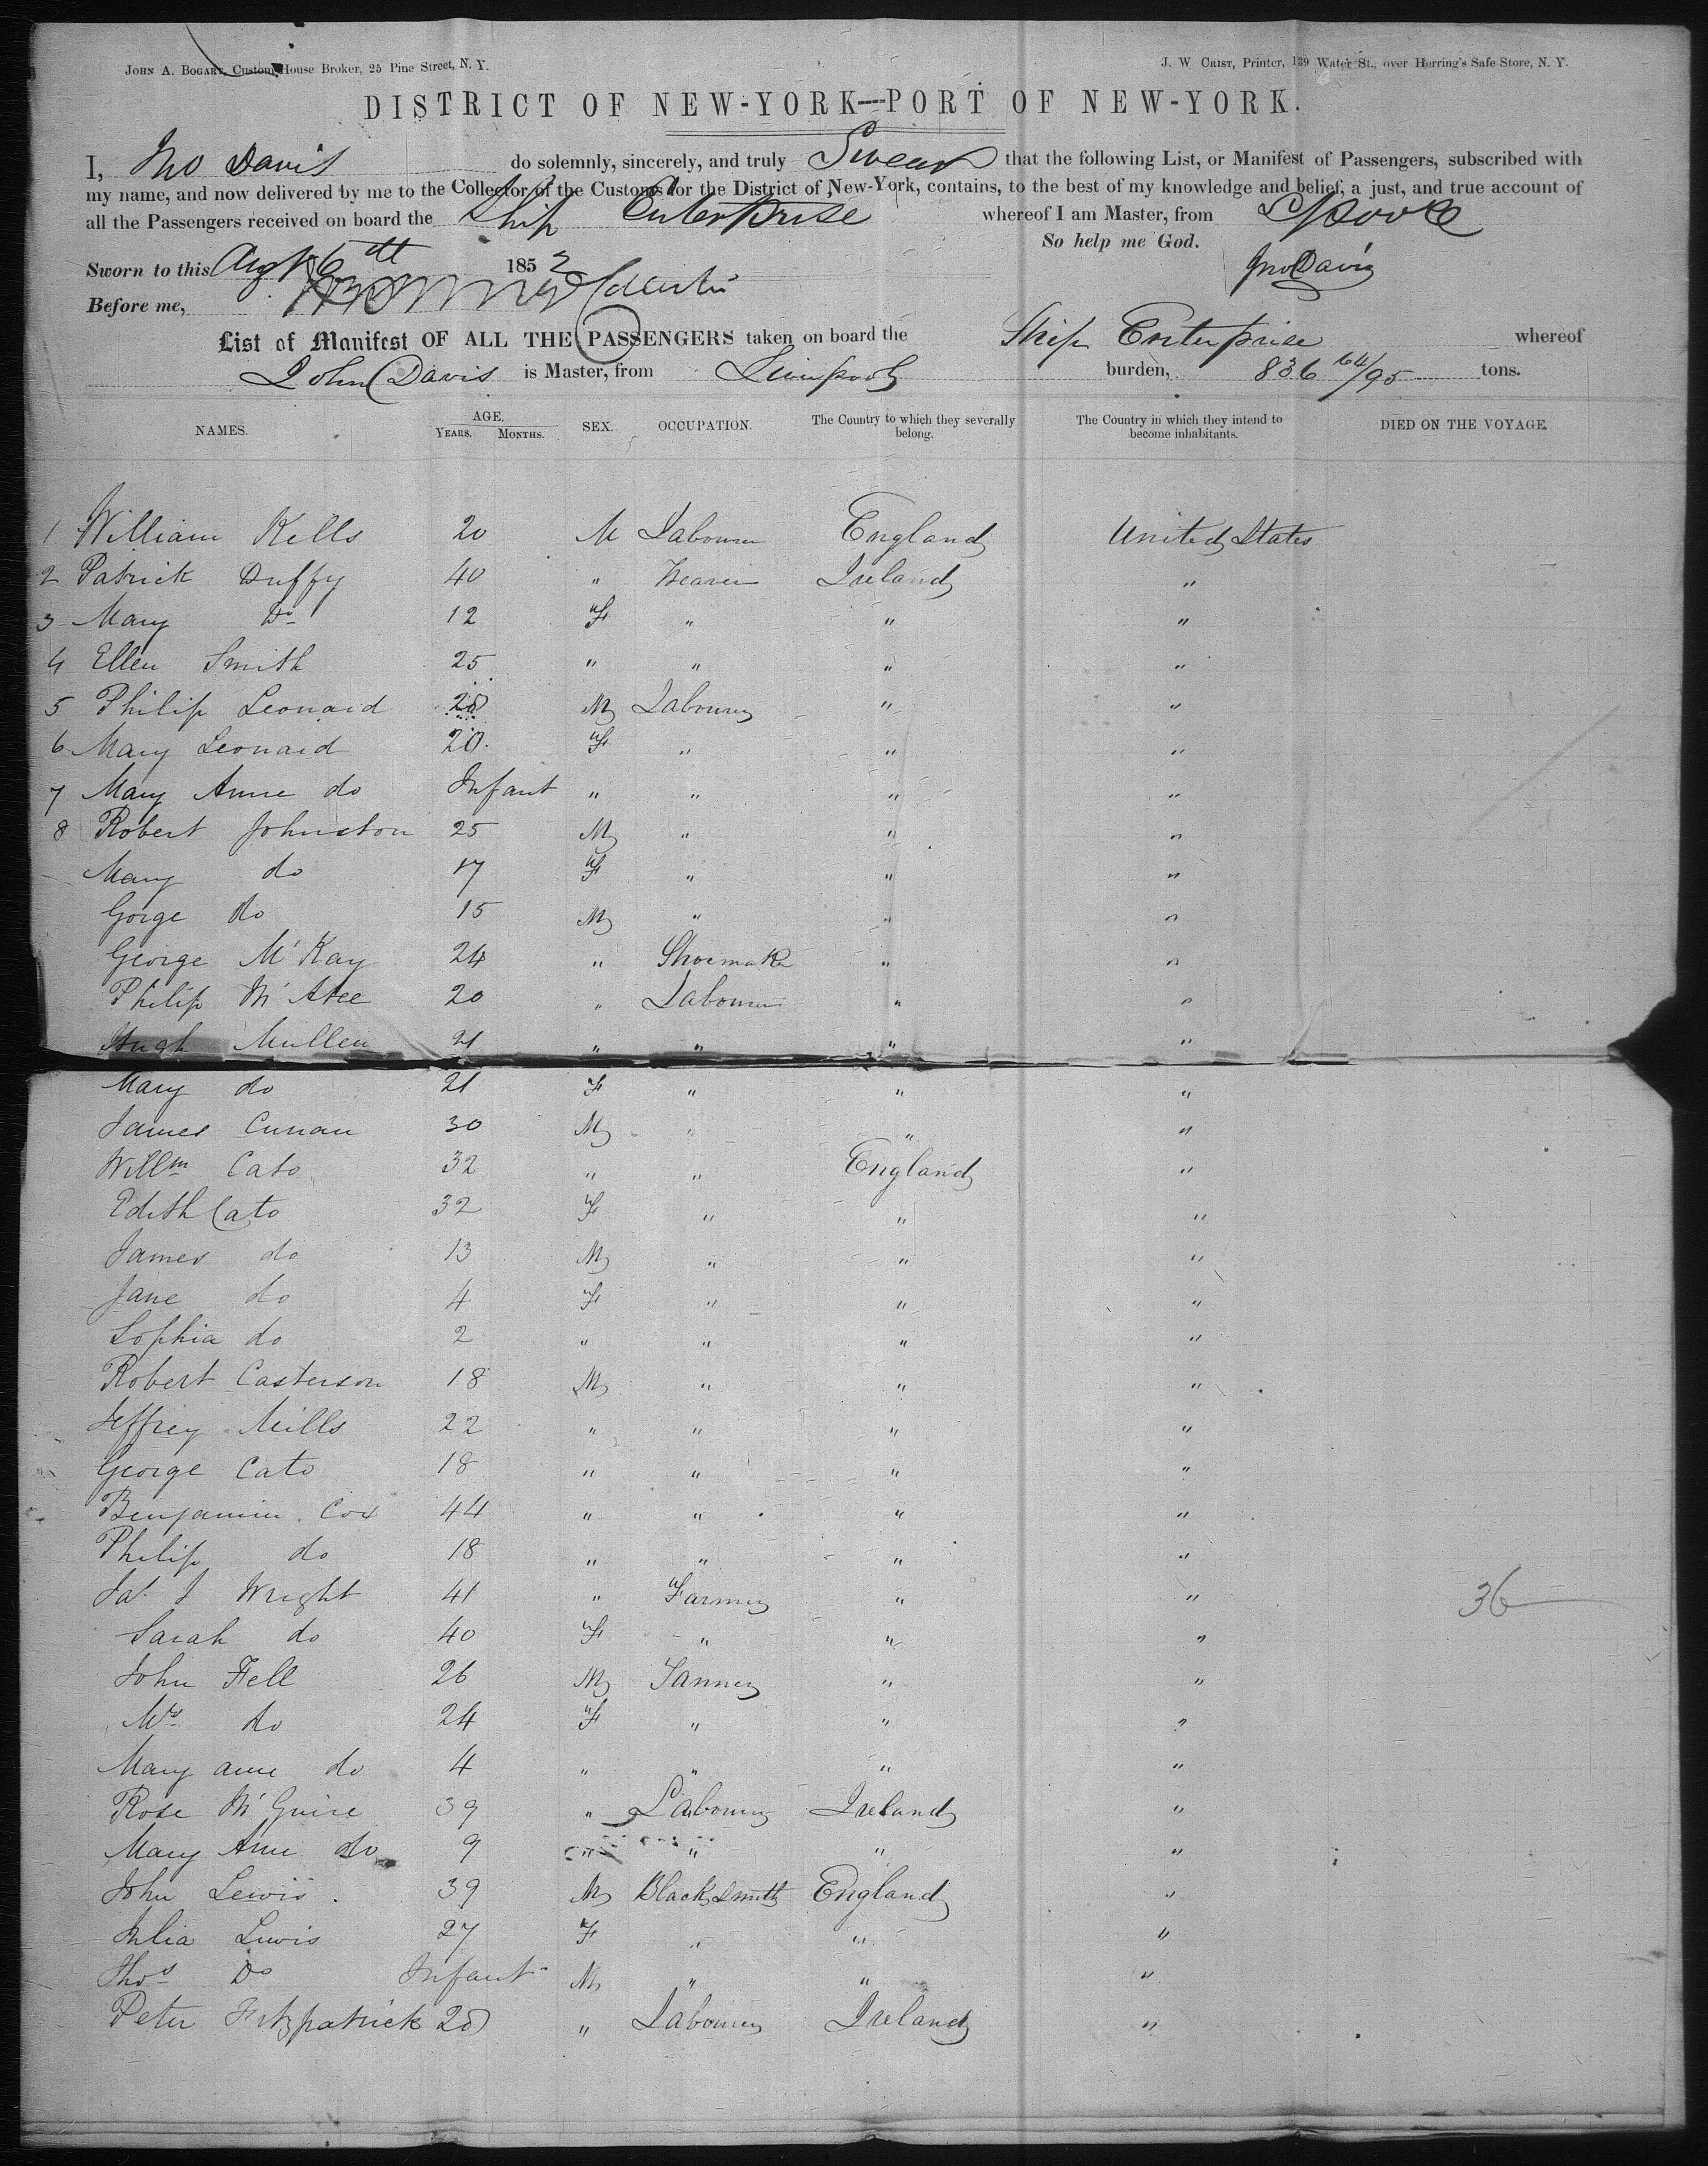 JOHN A. BOGART, Custom House Broker, 25 Pine Street, N. Y.
J. W CRIST, Printer, 139 Water St., over Herring's Safe Store, N. Y.
DISTRICT OF NEW-YORK---PORT OF NEW-YORK.
I, Jno Davis do solemnly, sincerely, and truly Swear that the following List, or Manifest of Passengers, subscribed with
my name, and now delivered by me to the Collector of the Customs for the District of New-York, contains, to the best of my knowledge and belief, a just, and true account of
all the Passengers received on board the Ship Enterprise whereof I am Master, from LPool
So help me God.
Sworn to this Augt 6th 1852 Jno Davis
Before me,
List of Manifest OF ALL THE PASSENGERS taken on board the Ship Enterprise whereof
John Davis is Master, from Liverpool burden, 836 64/95 tons.
NAMES. AGE. YEARS. MONTHS. SEX. OCCUPATION. The Country to which they severally belong. The Country in which they intend to become inhabitants. DIED ON THE VOYAGE.
1 William Kells 20 M Labourer England United States
2 Patrick Duffy 40 " Weaver Ireland "
3 Mary Do 12 F " " "
4 Ellen Smith 25 " " " "
5 Philip Leonard 28 M Labourer " "
6 Mary Leonard 20 F " " "
7 Mary Anne do Infant " " " "
8 Robert Johnston 25 M " " "
Mary do 17 F " " "
Gorge do 15 M " " "
George M'Kay 24 " Shoemaker " "
Philip M'Atee 20 " Labourer " "
Hugh Mullen 21 " " " "
Mary do 21 F " " "
James Cunan 30 M " " "
Willm Cato 32 " " England "
Edith Cato 32 F " " "
James do 13 M " " "
Jane do 4 F " " "
Sophia do 2 " " " "
Robert Casterson 18 M " " "
Jeffrey Mills 22 " " " "
George Cato 18 " " " "
Benjamin Cox 44 " " " "
Philip do 18 " " " "
Jas J Wright 41 " Farmer " "
36
Sarah do 40 F " " "
John Fell 26 M Tanner " "
Mrs do 24 F " " "
Mary anne do 4 " " " "
Rose M'Guire 39 " Labourer Ireland "
Mary Ann do 9 " " " "
John Lewis 39 M Blacksmith England "
Julia Lewis 27 F " " "
Thos Do Infant M " " "
Peter Fitzpatrick 20 " Labourer Ireland "